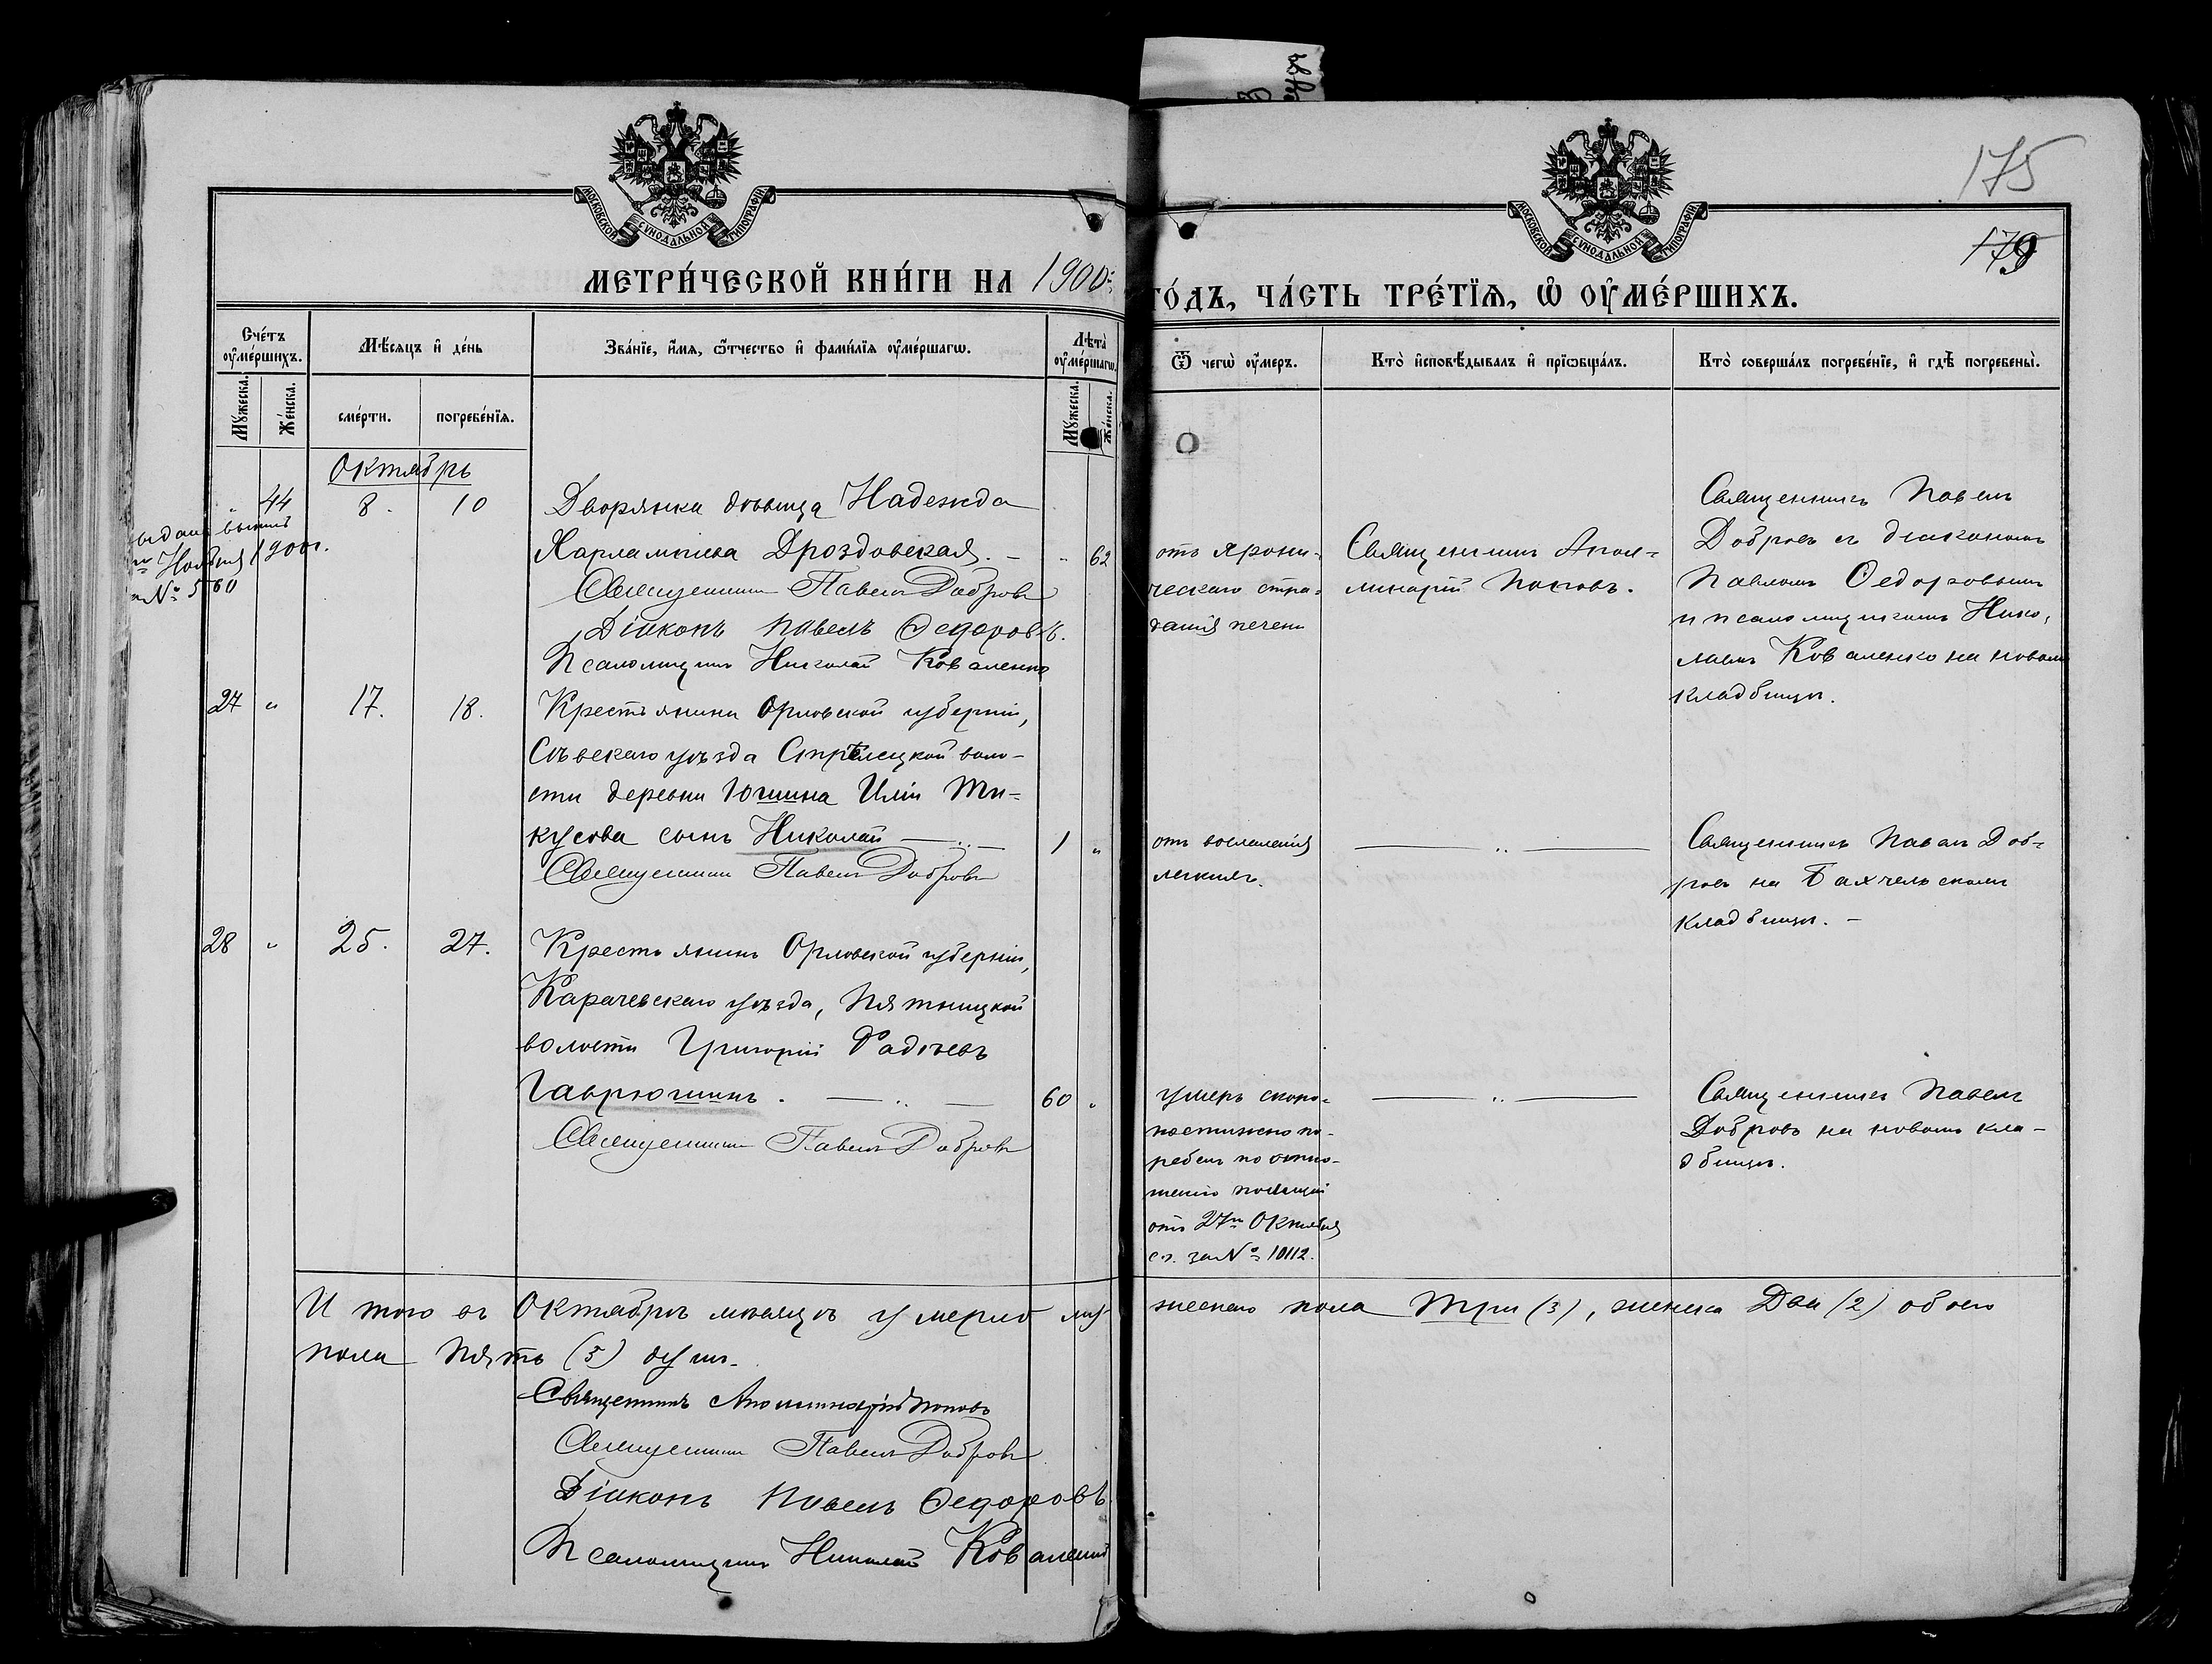 175
179
МОСКОВСКОЙ СѴНОДАЛЬНОЙ ТИПОГРАФІИ
МОСКОВСКОЙ СѴНОДАЛЬНОЙ ТИПОГРАФІИ
МЕТРИ́ЧЕСКОЙ КНИ́ГИ НА 1900й
ГО́ДЪ, ЧА́СТЬ ТРЕ́ТЇѦ, Ѡ҆ ОУ҆МЕ́РШИХЪ.
Сче́тъ оу҆ме́ршихъ.
Мꙋ́жеска.
Же́нска.
Мѣ́сѧцъ и҆ де́нь
сме́рти.
погребе́нїѧ.
Зва́нїе, и҆́мѧ, ѻ҆́тчество и҆ фами́лїѧ оу҆ме́ршагѡ.
Лѣ́та оу҆ме́ршагѡ.
Мꙋ́жеска.
Же́нска.
Ѿ чегѡ̀ оу҆́меръ.
Кто̀ и҆сповѣ́дывалъ и҆ прїѡбща́лъ.
Кто̀ соверша́лъ погребе́нїе, и҆ гдѣ̀ погребены̀.
Октябрь
" 44 8. 10
Дворянка дѣвица Надежда
Харлампiева Дроздовская. - - 62
Священникъ Павелъ Добровъ
Діаконъ Павелъ Ѳедоровъ.
Псаломщикъ Николай Коваленко
Ноября 1900 г.
№ 560
отъ хрони-
ческаго стра-
данія печени
Священникъ Апол-
линарій Поповъ.
Священникъ Павелъ
Добровъ съ діакономъ
Павломъ Ѳедоровымъ
и псаломщикомъ Нико-
лаемъ Коваленко на новомъ
кладбищѣ.
27 " 17. 18.
Крестьянина Орловской губерніи,
Сѣвскаго уѣзда Стрѣлецкой воло-
сти деревни Юшина Иліи Ти-
кусова сынъ Николай 1 "
Священникъ Павелъ Добровъ
отъ воспаленія
легкихъ.
Священникъ Павелъ Доб-
ровъ на Бахчельскомъ
кладбищѣ. -
28 " 25. 27.
Крестьянинъ Орловской губерніи,
Карачевскаго уѣзда, Пятницкой
волости Григорій Фадѣевъ
Гаврюшинъ. 60 "
Священникъ Павелъ Добровъ
умеръ скоро-
постижно по-
гребенъ по отно-
шенію полиціи
отъ 27го Октября
с.г. за № 10112.
Священникъ Павелъ
Добровъ на новомъ кла-
дбищѣ.
Итого въ Октябрѣ мѣсяцѣ умерло му-
жескаго пола Три (3), женска Два (2) обоего
пола пять (5) душъ.
Священникъ Аполлинарій Поповъ
Священникъ Павелъ Добровъ
Діаконъ Павелъ Ѳедоровъ
Псаломщикъ Николай Коваленко